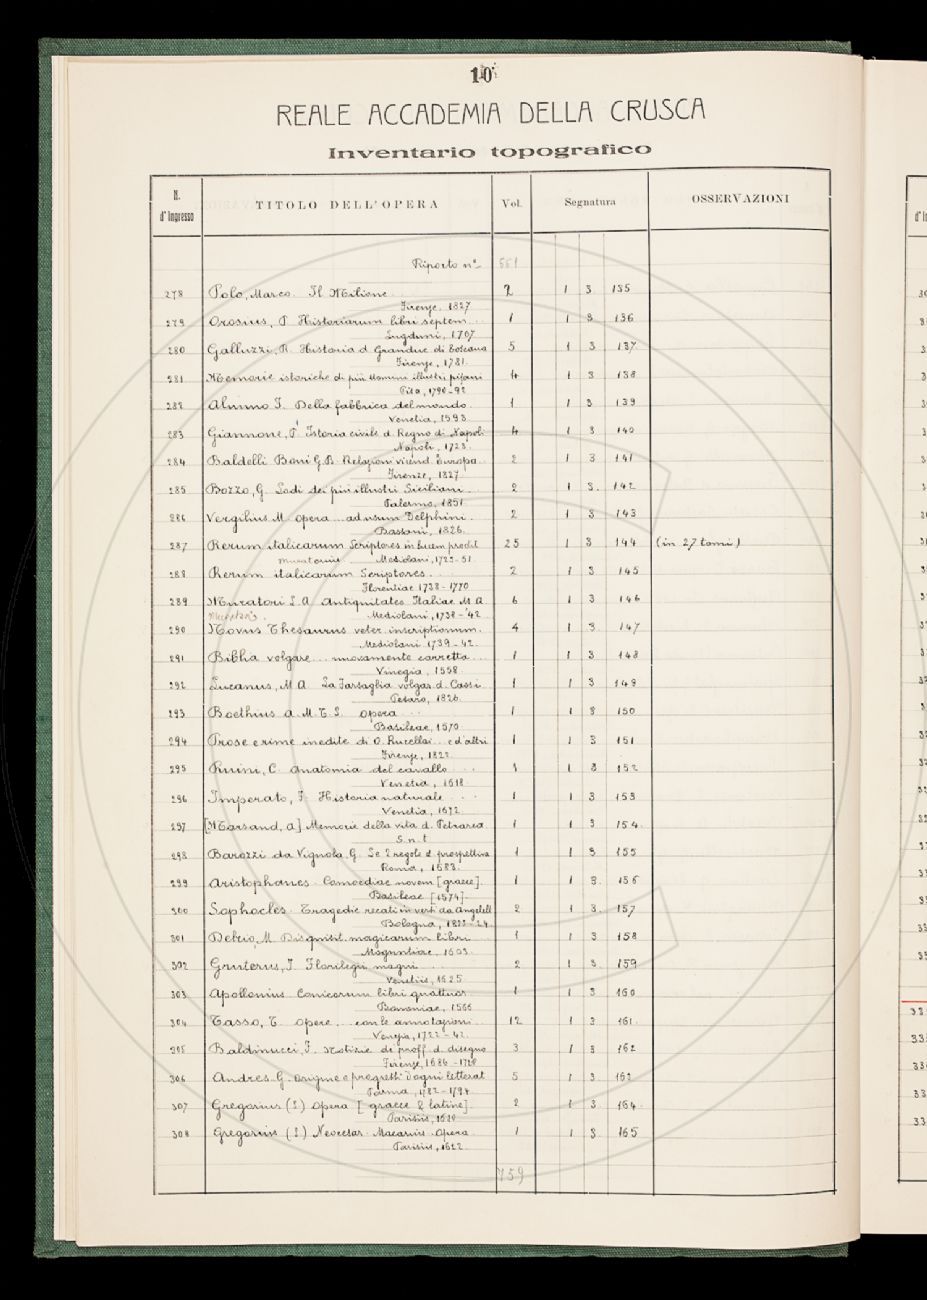 10
REALE ACCADEMIA DELLA CRUSCA
Inventario topografico
N. d'Ingresso TITOLO DELL'OPERA Vol. Segnatura OSSERVAZIONI
Riporto n° 551
278 Polo, Marco. Il Milione 2 1 3 135
Firenze, 1827
279 Orosius, P. Historiarum libri septem 1 1 3 136
Lugduni, 1767
280 Galluzzi, R. Historia d. Granduc. di Toscana 5 1 3 137
Firenze, 1781
281 Memorie istoriche di più uomini illustri pisani 4 1 3 138
Pisa, 1790-92
282 Alunno F. Della fabbrica del mondo 1 1 3 139
Venetia, 1593
283 Giannone, P. Istoria civile d. Regno di Napoli 4 1 3 140
Napoli, 1723
284 Baldelli Boni G.B. Relazioni vicend. Europa 2 1 3 141
Firenze, 1827
285 Bozzo, G. Lodi dei più illustri Siciliani 2 1 3. 142
Palermo, 1851
286 Vergilius M. opera ... ad usum Delphini. 2 1 3 143
Bassani, 1826
287 Rerum italicarum Scriptores in lucem prodit 25 1 3 144 (in 27 tomi)
Muratorius Mediolani, 1723-51
288 Rerum italicarum Scriptores 2 1 3 145
Florentiae 1738-1770
289 Muratori L.A. Antiquitates Italiae M. A. 6 1 3 146
Mediolani, 1738-'42
290 Novus Thesaurus veter. inscriptionum. 4 1 3 147
Mediolani 1739-42
291 Biblia volgare ... nuovamente corretta 1 1 3 148
Vinegia, 1558
292 Lucanus, M. A. La Farsaglia volgar. d. Cassi 1 1 3 149
Pesaro, 1826
293 Boethius A. M. T. S. opera 1 1 3 150
Basileae, 1570
294 Prose e rime inedite di O. Rucellai ... e d'altri 1 1 3 151
Firenze, 1822
295 Ruini, C. Anatomia del cavallo 1 1 3 152
Venetia, 1618
296 Imperato, F. Historia naturale 1 1 3 153
Venetia, 1672
297 [Marsand, A] Memorie della vita d. Petrarca 1 1 3 154
S. n. t
298 Barozzi da Vignola. G. Le 2 regole d. prospettiva 1 1 3 155
Roma, 1583
299 Aristophanes. Comoediae novem [graece] 1 1 3. 156
Basileae [1574]
300 Sophocles. Tragedie recati in versi da Angelelli 2 1 3. 157
Bologna, 1823-24
301 Delrio, M. Disquisit. magicarum libri 1 1 3 158
Moguntiae, 1603
302 Gruterus, J. Florilegii magni 2 1 3 159
Venetiis, 1625
303 Apollonius. Conicorum libri quattuor 1 1 3 160
Bononiae, 1566
304 Tasso, T. Opere ... con le annotazioni 12 1 3 161
Venezia, 1722-42
305 Baldinucci, F. Notizie de' proff. d. disegno 3 1 3 162
Firenze, 1686-1728
306 Andres. G. origine e progressi d'ogni letterat 5 1 3 163
Parma, 1782-1794
307 Gregorius (S.) Opera [graece & latine] 2 1 3 164
Parisiis, 1630
308 Gregorius (S.) Neocesar. Macarius. Opera 1 1 3 165
Parisiis, 1622
759